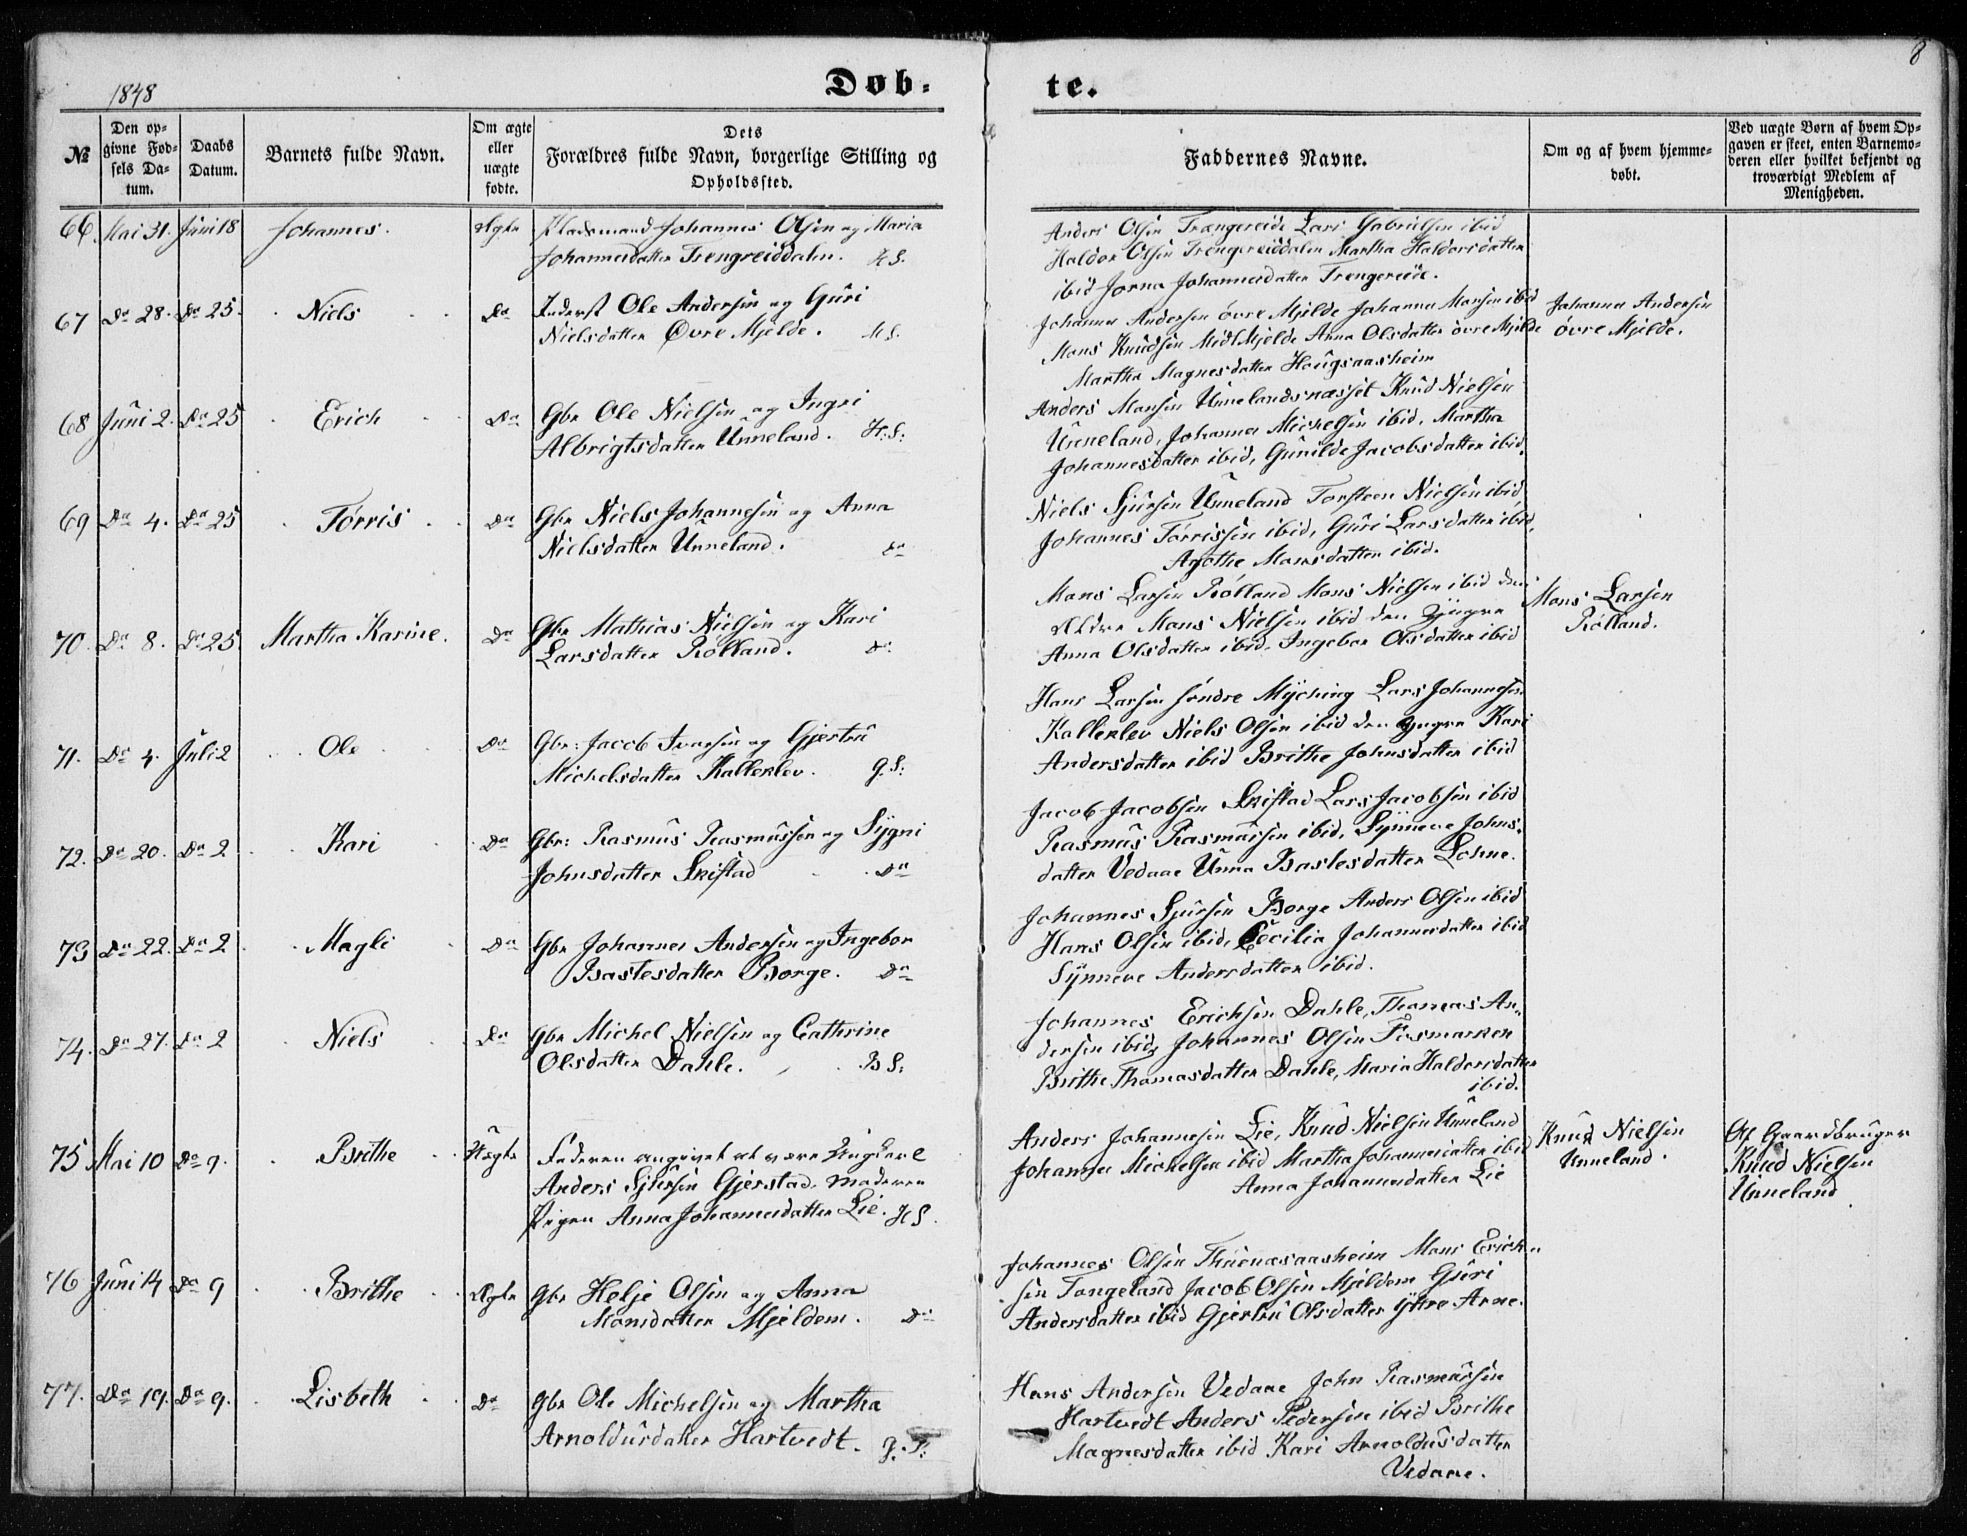 8
1848
Døb-
te.
№
Den op-
givne Fød-
sels Da-
tum.
Daabs
Datum.
Barnets fulde Navn.
Om ægte
eller
uægte
fødte.
Dets
Forældres fulde Navn, borgerlige Stilling og
Opholdssted.
Faddernes Navne.
Om og af hvem hjemme-
døbt.
Ved uægte Børn af hvem Op-
gaven er skeet, enten Barnemo-
deren eller hvilket bekjendt og
troværdigt Medlem af
Menigheden.
66 Mai 31. Juni 18 Johannes. Ægte
Pladsmand Johannes Olsen og Maria
Johannesdatter Trengreiddalen. H S.
Anders Olsen Trængereide Lars Gabrielsen ibid
Haldor Olsen Trengereiddalen Martha Haldorsdatter
ibid Jorna Johannesdatter Trengereide.
67 Do 28. Do 25. Niels Do
Inderst Ole Andersen og Guri
Nielsdatter Øvre Mjelde. H S.
Johannes Andersen øvre Mjelde Johannes Monsen ibid
Mons Knudsen Midt Mjelde Anna Olsdatter øvre Mjelde
Martha Magnesdatter Hougsaasheim
Johannes Andersen
øvre Mjelde.
68 Juni 2. Do 25 Erich Do
Gbr Ole Nielsen og Ingri
Albrigtsdatter Unneland. H: S:
Anders Monsen Unnelandsnæsset Knud Nielsen
Unneland, Johannes Michelsen ibid. Martha
Johannesdatter ibid, Gunilde Jacobsdatter ibid.
69 Do 4. Do 25 Tørris Do
Gbr Niels Johannesen og Anna
Nielsdatter Unneland. Do
Niels Sjursen Unneland Torsteen Nielsen ibid,
Johannes Tørrissen ibid, Guri Larsdatter ibid,
Agothe Monsdatter ibid.
70. Do 8. Do 25. Martha Karine. Do
Gbr Mathias Nielsen og Kari
Larsdatter Rølland. Do
Mons Larsen Rølland Mons Nielsen ibid den
Ældre Mons Nielsen ibid den Yngre
Anna Olsdatter ibid. Ingebor Olsdatter ibid
Mons Larsen
Rølland.
71. Do 4. Juli 2 Ole Do
Gbr: Jacob Ivarsen og Gjertru
Michelsdatter Kalleklev. G. S:
Hans Larsen søndre Mycking Lars Johannesen
Kalleklev Niels Olsen ibid den yngre Kari
Andersdatter ibid Brithe Johnsdatter ibid
72. Do 20. Do 2 Kari Do
Gbr: Rasmus Rasmussen og Sygni
Johnsdatter Skistad Do
Jacob Jacobsen Skistad Lars Jacobsen ibid
Rasmus Rasmussen ibid, Synneve Johns-
datter Vedaae Unna Bastesdatter Lohne.
73 Do 22. Do 2 Magli Do
Gbr Johannes Andersen og Ingebor
Bastesdatter Borge. Do
Johannes Sjursen Borge Anders Olsen ibid
Hans Olsen ibid, Cecilia Johannesdatter ibid
Synneve Andersdatter ibid.
74. Do 27. Do 2 Niels Do
Gbr Michel Nielsen og Cathrine
Olsdatter Dahle. B S:
Johannes Erichsen Dahle, Thomas An-
dersen ibid, Johannes Olsen Fismarken
Brithe Thomasdatter Dahle, Maria Haldorsdatter
ibid.
75 Mai 10 Do 9. Brithe Uægte
Faderen angivet at være Ungkarl
Anders Sjursen Gjerstad. Moderen
Pigen Anna Johannesdatter Lie. H S.
Anders Johannesen Lie, Knud Nielsen Unneland
Johannes Michelsen ibid Martha Johannesdatter ibid
Anna Johannesdatter Lie
Knud Nielsen
Unneland.
Af Gaardbruger
Knud Nielsen
Unneland
76 Juni 14 Do 9 Brithe Ægte
Gbr Helje Olsen og Anna
Monsdatter Mjeldem. Do
Johannes Olsen Thunæsaasheim Mons Erich-
sen Tangeland Jacob Olsen Mjeldem Guri
Andersdatter ibid Gjertru Olsdatter Yttre Arne.
77. Do 19. Do 9. Lisbeth Do
Gbr Ole Michelsen og Martha
Arnoldusdatter Hartvedt.
Hans Andersen Vedaae John Rasmussen
Hartvedt Anders Pedersen ibid Brithe
Magnesdatter ibid Kari Arnoldusdatter
Vedaae.